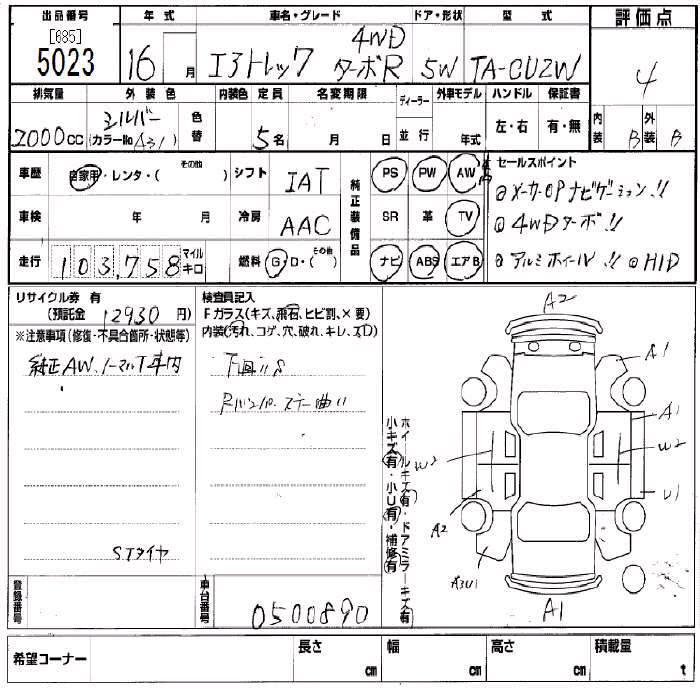 出品番号 年式 車名・グレード ドア・形状 型式 評価点
[685]
5023 16 月 エクストレック 4WD ターボR 5W TA-CU2W 4
排気量 外装色 内装色 定員 名変期限 ディーラー 外車モデル ハンドル 保証書 内装 外装
2000cc シルバー (カラーNo A31) 色替 5名 月 日 並行 年式 左・右 有・無 B B
車歴 自家用・レンタ・( その他 ) シフト IAT 純正装備品 PS PW AW セールスポイント
車検 年 月 冷房 AAC SR 革 TV
走行 103,758 マイル キロ 燃料 G・D・( その他 ) ナビ ABS エアB
◎メーカーOPナビゲーション!!
◎4WDターボ!!
◎アルミホイール!! ◎HID
リサイクル券 有
(預託金 12930 円)
※注意事項(修復・不具合箇所・状態等)
純正AW、ノーマルT車内
Sタイヤ
検査員記入
Fガラス(キズ、飛石、ヒビ割、×要)
内装(汚れ、コゲ、穴、破れ、キレ、スレ)
下廻りS
ホイールキズ(有)・ドアミラーキズ(有)
小キズ(有)・小U(有)・補修(有)
A2
A1
A1
W2
W3
U1
A2
A3U1
A1
登録番号 車台番号 0500890
希望コーナー 長さ cm 幅 cm 高さ cm 積載量 t